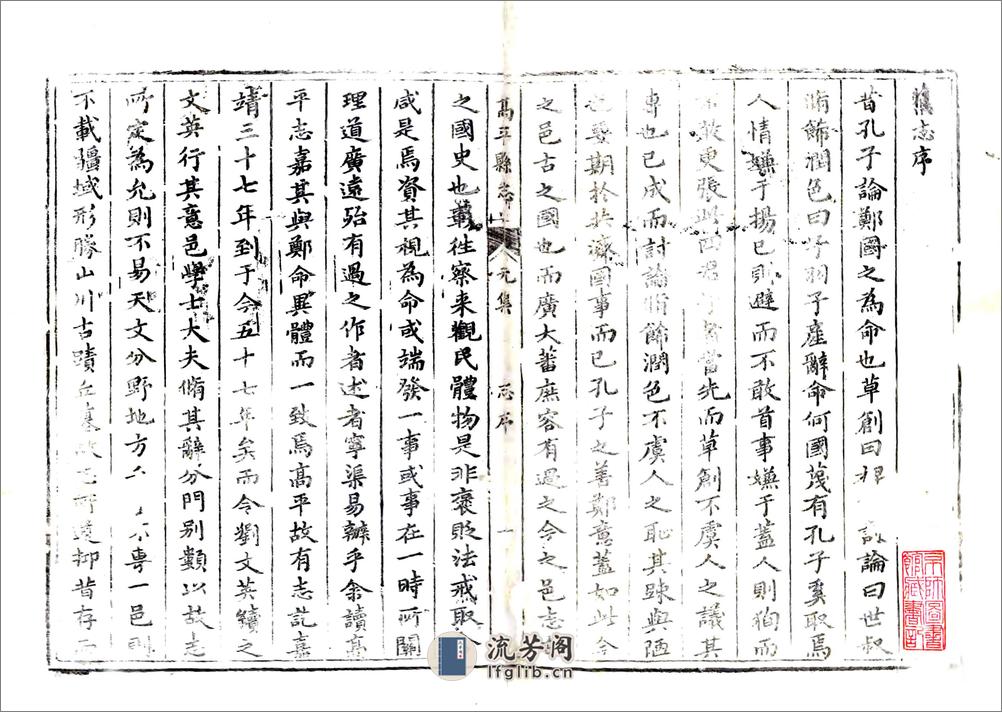 志序
昔孔子論鄭國之為命也草創曰 論曰世叔
脩飾潤色曰子羽子產辭命何國蔑有孔子奚取焉
人情嫌于揚己則避而不敢首事嫌于蓋人則徇而
不敢更張此四君子者當先而草創不虞人之議其
專也已成而討論脩餙潤色不虞人之恥其踈與陋
也要期於共濟國事而已孔子之善鄭意蓋如此今
之邑古之國也而廣大蕃庶容有過之今之邑志
高平縣志 元集 志序 一
之國史也彰往察来觀民體物是非褒貶法戒取
咸是焉資其視為命或端發一事或事在一時所關
理道廣遠殆有過之作者述者寧渠易辦乎余讀高
平志嘉其與鄭命異體而一致焉高平故有志訖嘉
靖三十七年到于今五十七年矣而令劉文英續之
文英行其意邑學士大夫脩其辭分門别類以故志
所定為允則不易天文分野地方 不專一邑則
不載疆域形勝山川古蹟丘墓故志所遺抑昔存而
京師圖書館藏書記
流芳阁
lfglib.cn